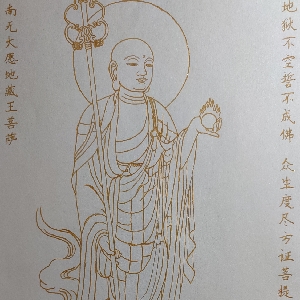 地狱不空誓不成佛 众生度尽方证菩提
南无大愿地藏王菩萨